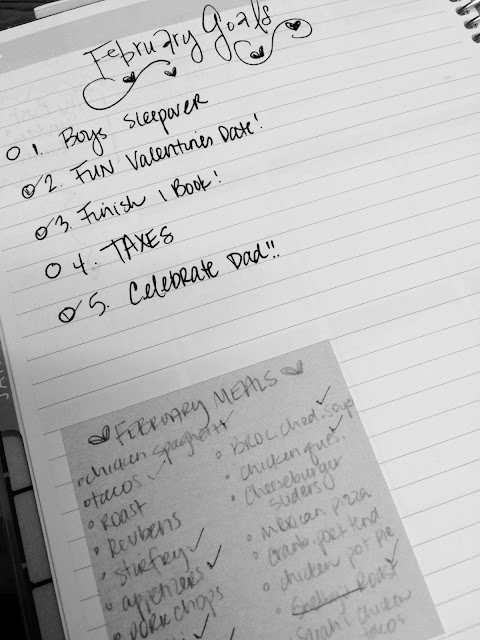 February Goals
1. Boys Sleepover
2. FUN Valentines Date!
3. Finish 1 Book!
4. TAXES
5. Celebrate Dad!!
FEBRUARY MEALS
chicken spaghetti
tacos
Roast
Reubens
Stirfry
appetizers
PORK CHOPS
BROC. Ched. Soup
chicken ques.
Cheeseburger
Sliders
Mexican pizza
Cranb. pork tend
chicken pot pie
Shelby's Roast
Sarah's chicken
tacos